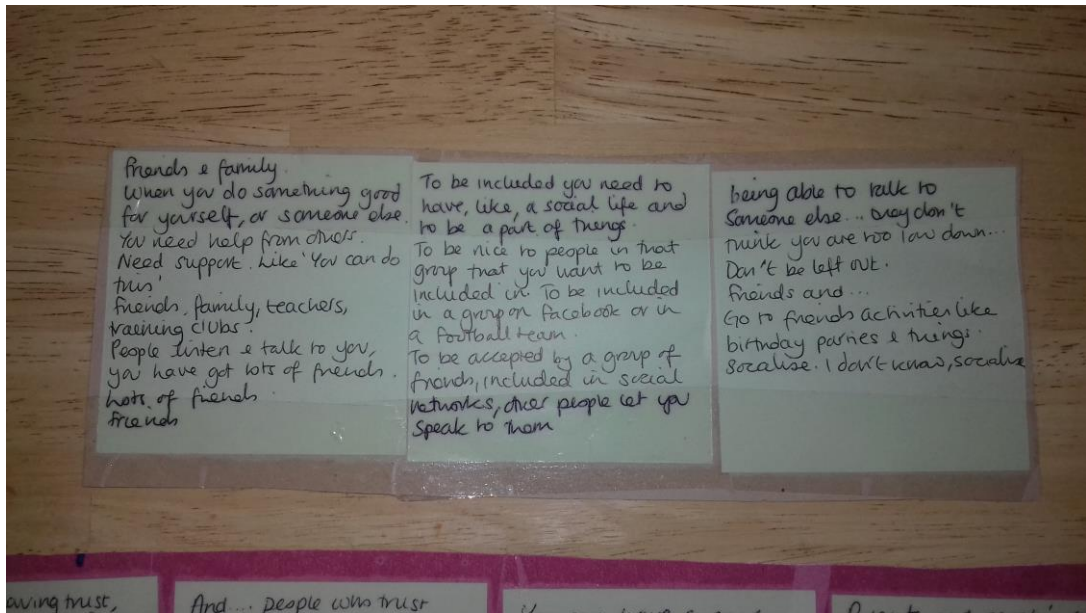 friends & family.
When you do something good
for yourself, or someone else.
You need help from others.
Need support. Like 'You can do
this'
friends, family, teachers,
training clubs.
People listen & talk to you,
you have got lots of friends.
Lots of friends
friends
To be included you need to
have, like, a social life and
to be a part of things.
To be nice to people in that
group that you want to be
included in. To be included
in a group on facebook or in
a football team.
To be accepted by a group of
friends, included in social
networks, other people let you
speak to them
being able to talk to
someone else... they don't
think you are too low down...
Don't be left out.
friends and...
Go to friends activities like
birthday parties & things.
Socialise. I don't know, socialise
aving trust,
And.... people who trust